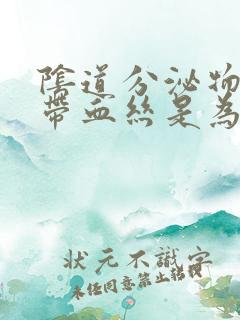 陰道分泌物
帶血絲是為
狀元不識字
未任同意禁止轉載